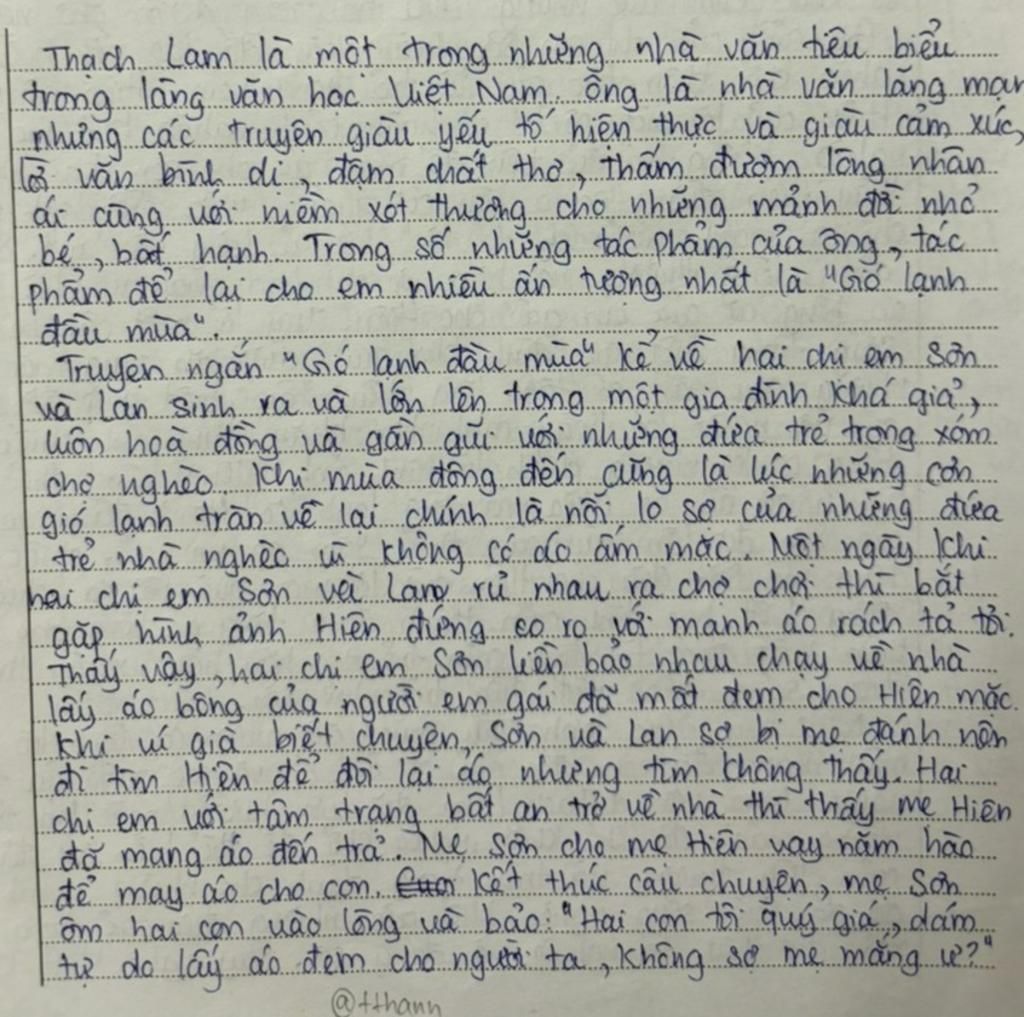 Thạch Lam là một trong những nhà văn tiêu biểu
trong làng văn học Việt Nam. Ông là nhà văn lãng mạn
nhưng các truyện giàu yếu tố hiện thực và giàu cảm xúc,
lời văn bình dị, đậm chất thơ, thấm đượm lòng nhân
ái cùng với niềm xót thương cho những mảnh đời nhỏ
bé, bất hạnh. Trong số những tác phẩm của ông, tác
phẩm để lại cho em nhiều ấn tượng nhất là "Gió lạnh
đầu mùa".
Truyện ngắn "Gió lạnh đầu mùa" kể về hai chị em Sơn
và Lan sinh ra và lớn lên trong một gia đình khá giả,
luôn hoà đồng và gần gũi với những đứa trẻ trong xóm
chợ nghèo. Khi mùa đông đến cũng là lúc những cơn
gió lạnh tràn về lại chính là nỗi lo sợ của những đứa
trẻ nhà nghèo vì không có áo ấm mặc. Một ngày khi
hai chị em Sơn và Lan rủ nhau ra chợ chơi thì bắt
gặp hình ảnh Hiên đứng co ro với manh áo rách tả tơi.
Thấy vậy, hai chị em Sơn liền bảo nhau chạy về nhà
lấy áo bông của người em gái đã mất đem cho Hiên mặc.
Khi vú già biết chuyện, Sơn và Lan sợ bị mẹ đánh nên
đi tìm Hiên để đòi lại áo nhưng tìm không thấy. Hai
chị em với tâm trạng bất an trở về nhà thì thấy mẹ Hiên
đã mang áo đến trả. Mẹ Sơn cho mẹ Hiên vay năm hào
để may áo cho con. Kết thúc câu chuyện, mẹ Sơn
ôm hai con vào lòng và bảo: "Hai con tôi quý giá, dám
tự do lấy áo đem cho người ta, không sợ mẹ mắng ư?"
@tthann